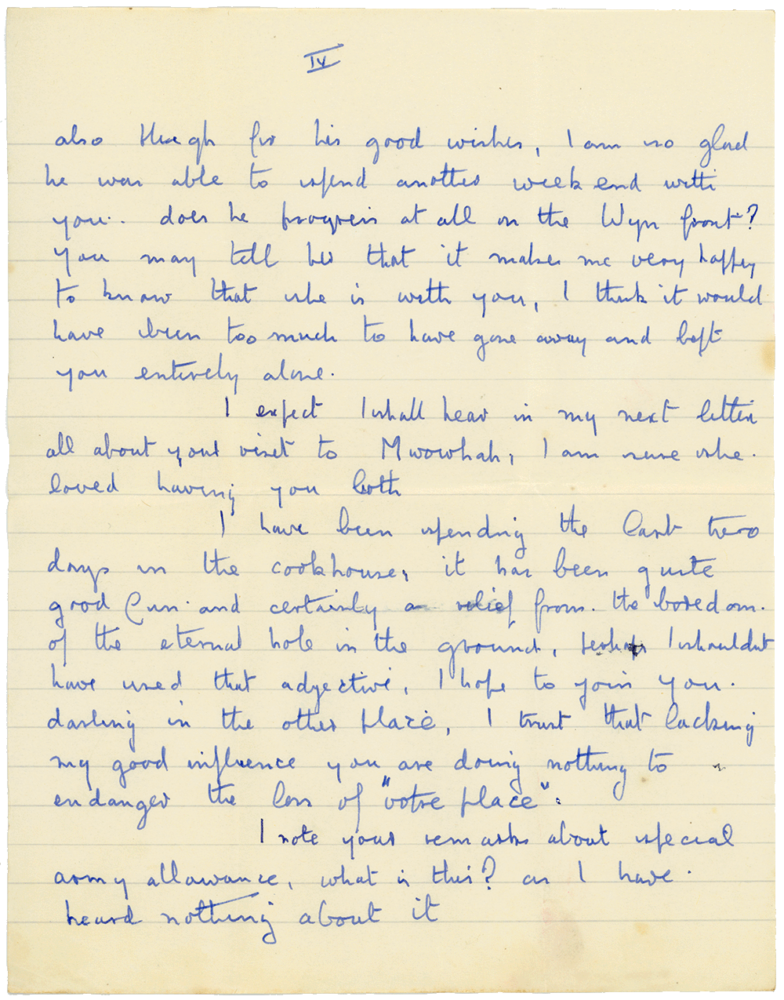 IV
also though for his good wishes, I am so glad
he was able to spend another week end with
you. does he progress at all on the Wyn front?
You may tell her that it makes me very happy
to know that she is with you, I think it would
have been too much to have gone away and left
you entirely alone.
I expect I shall hear in my next letter
all about your visit to Mwowhah, I am sure she
loved having you both
I have been spending the last two
days in the cookhouse, it has been quite
good fun and certainly a relief from the boredom
of the eternal hole in the ground, perhaps I shouldnt
have used that adjective, I hope to join you
darling in the other place, I trust that lacking
my good influence you are doing nothing to
endanger the loss of "votre place".
I note your remarks about special
army allowance, what is this? as I have
heard nothing about it